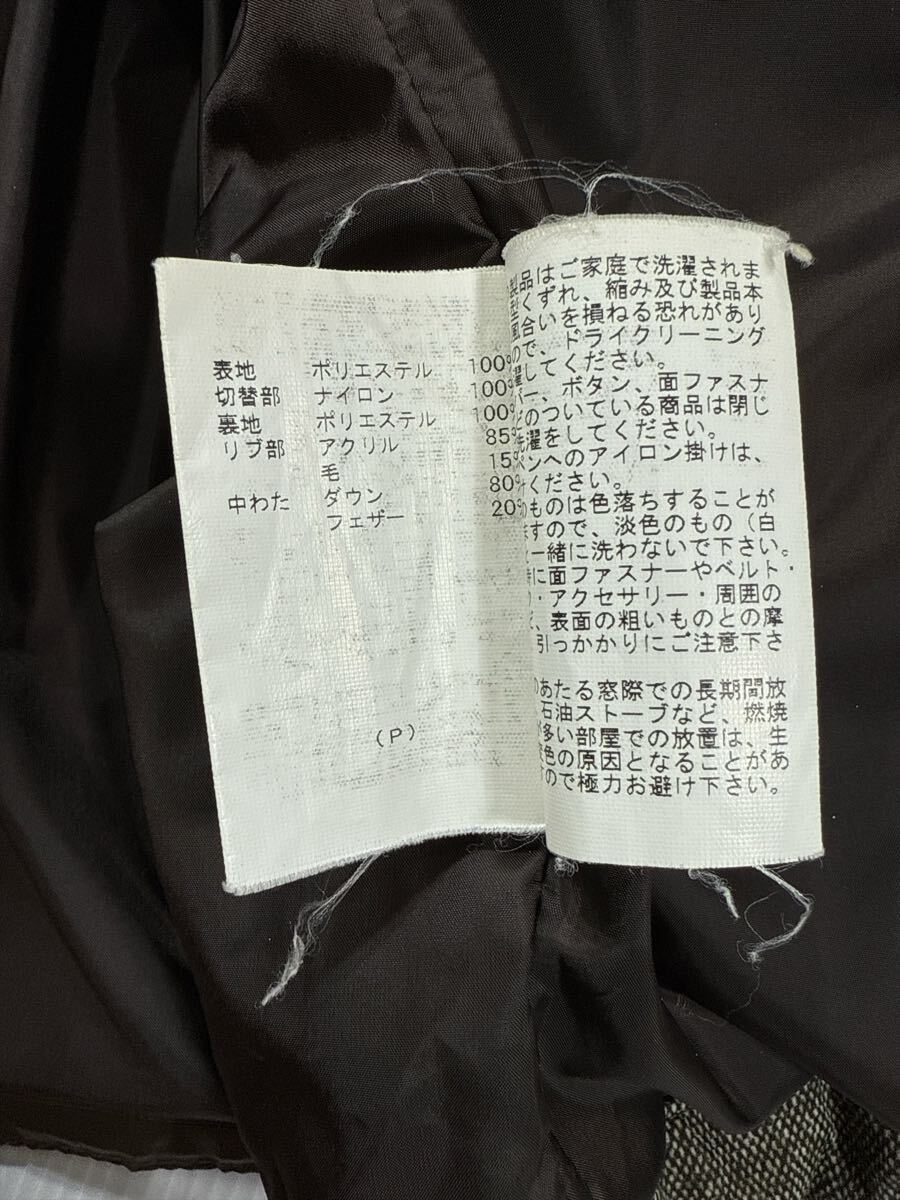 表地 ポリエステル 100%
切替部 ナイロン 100%
裏地 ポリエステル 100%
リブ部 アクリル 85%
毛 15%
中わた ダウン 80%
フェザー 20%
(P)
製品はご家庭で洗濯されま
型くずれ、縮み及び製品本
風合いを損ねる恐れがあり
ので、ドライクリーニング
してください。
ー、ボタン、面ファスナ
のついている商品は閉じ
洗濯をしてください。
ペンへのアイロン掛けは、
ください。
のものは色落ちすることが
ますので、淡色のもの(白
と一緒に洗わないで下さい。
時に面ファスナーやベルト・
・アクセサリー・周囲の
、表面の粗いものとの摩
引っかかりにご注意下さ
のあたる窓際での長期間放
石油ストーブなど、燃焼
が多い部屋での放置は、生
変色の原因となることがあ
すので極力お避け下さい。